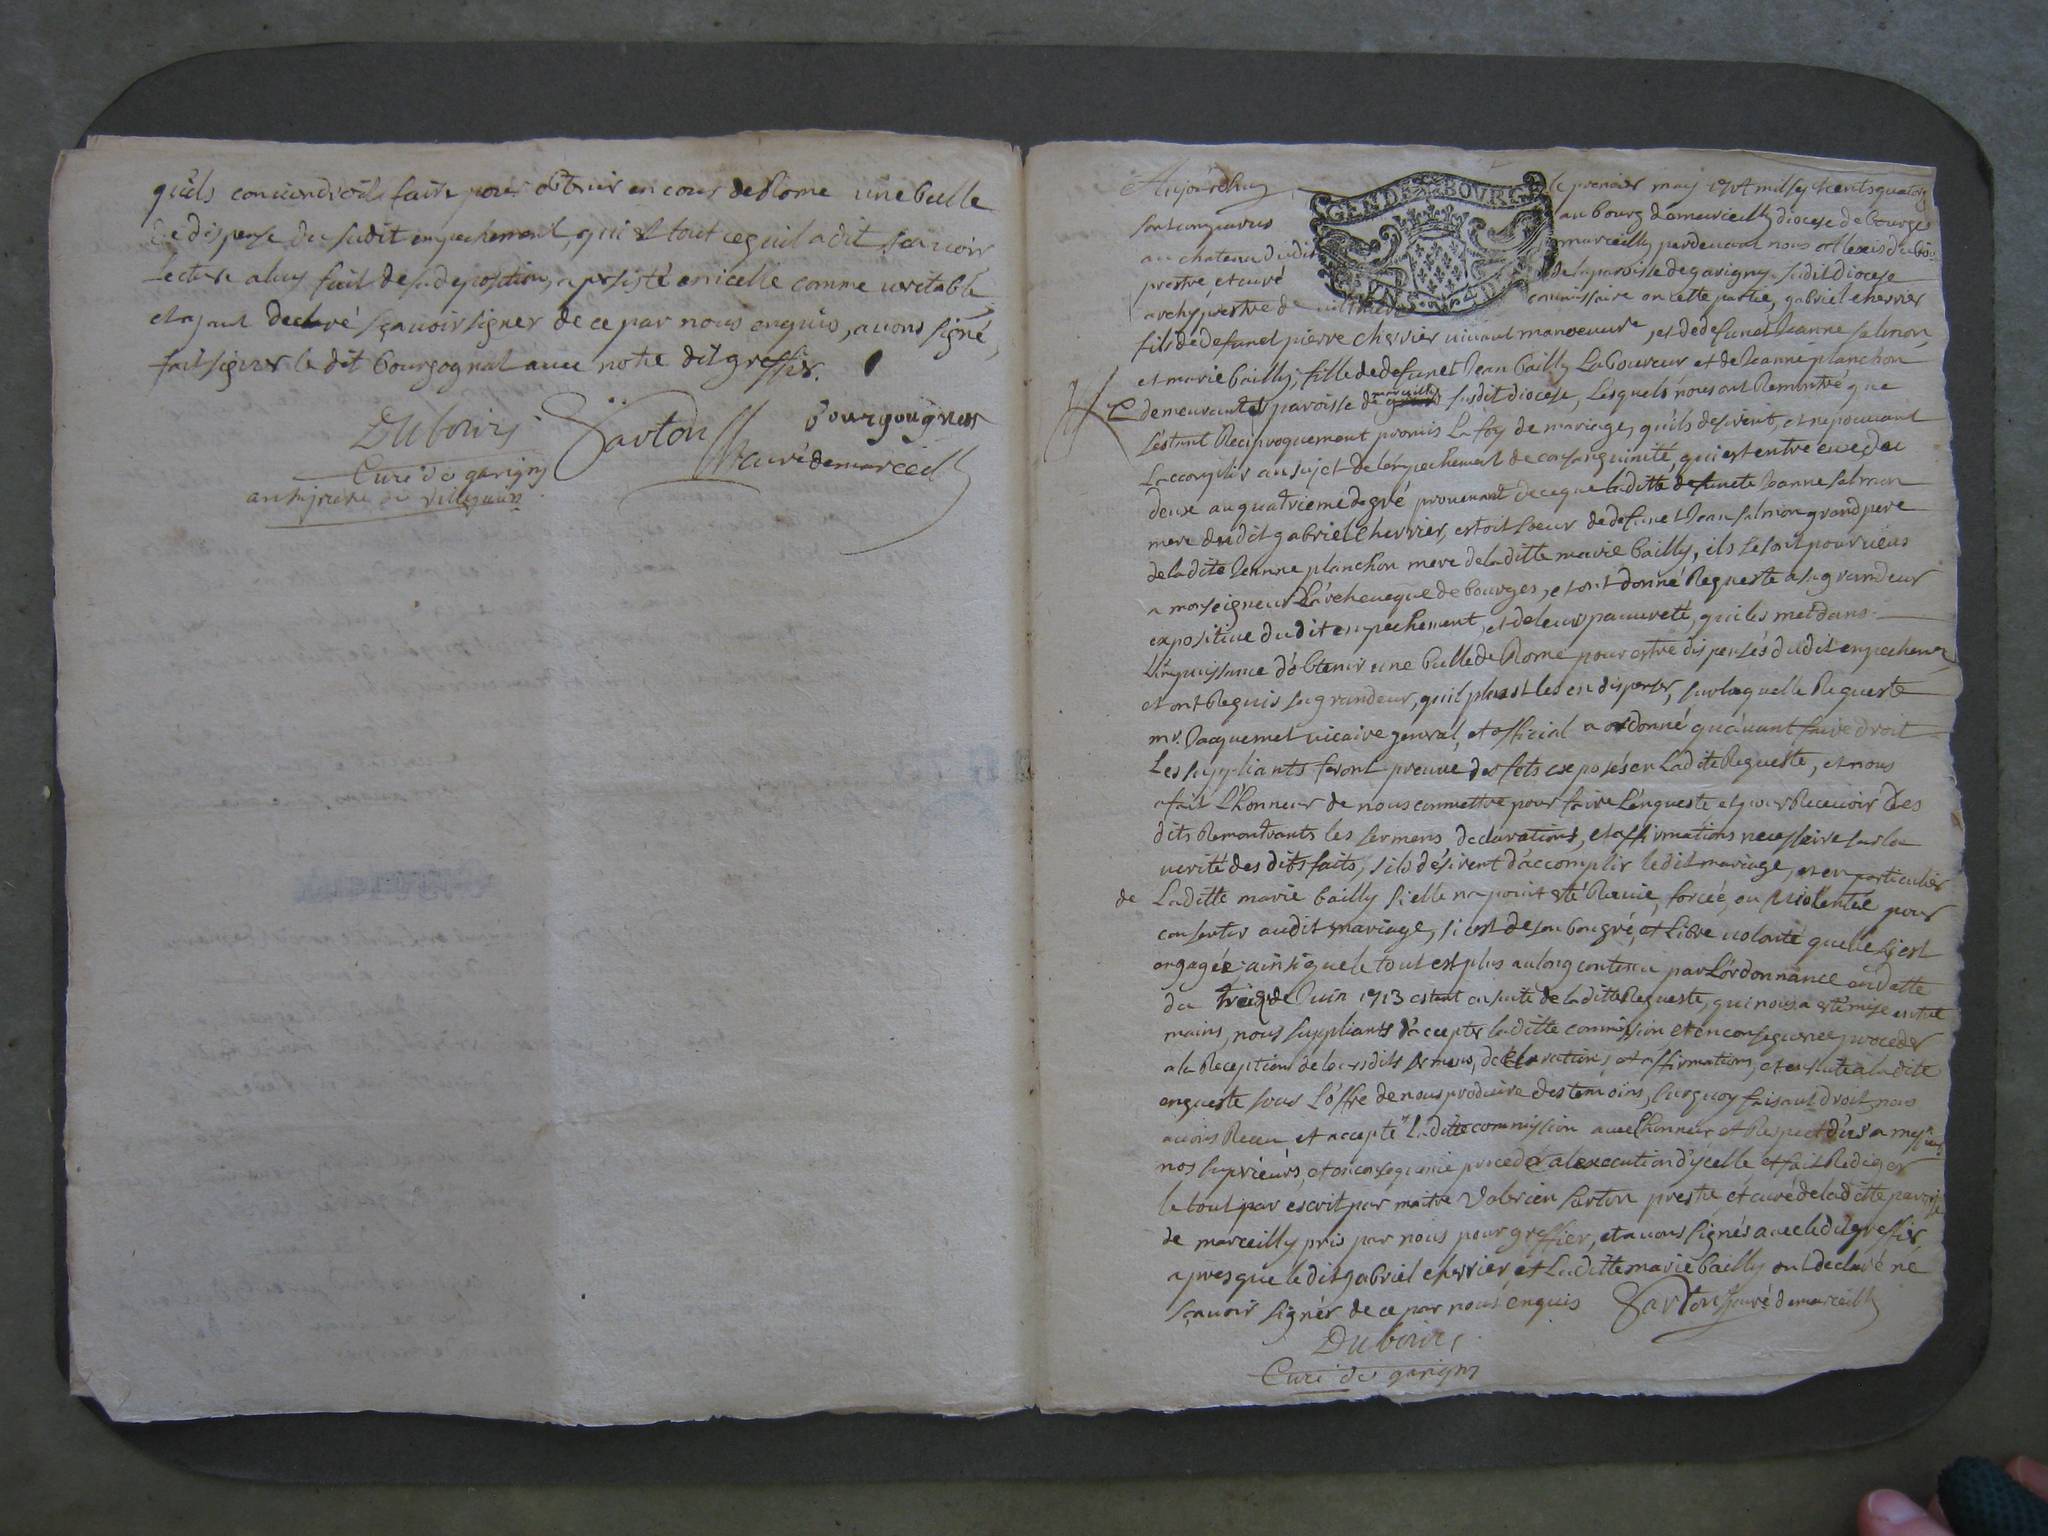 quils conviendroit faire pour obtenir en cour de Rome une bulle
de dispense du sudit empechement, qui est tout ce quil a dit scavoir
Lecture a luy fait de sa deposition, a persisté en icelle comme veritable
et ajant declaré sçavoir signer de ce par nous enquis, avons signé,
fait signer le dit bourgognat avec notre dit greffier.
Dubois Sarton bourgougnon
curé de marceilly
Curé de garigny
archiprestre de
Aujourdhuy GEN DE BOURG le premier may 1714 mil sept cents quatorze
au bourg de marceilly diocese de bourges
au chateau dudit marceilly pardevant nous Alexis dubois
prestre, et curé de la paroisse de garigny sudit diocese
archyprestre de commissaire en cette partie, gabriel cherrier
fils de defunct pierre cherrier vivant manoeuvre, et de defunct Jeanne salmon,
et marie bailly, fille de defunct Jean bailly Laboureur et de Jeanne planchon
demeurants paroisse de marceilly susdit diocese, Lesquels nous ont Remontré que
s'estant Reciproquement promis La foy de mariage, quils desirent, et ne pouvant
L'accomplir au sujet de l'empechement de consanguinité, qui est entre eux du
deux au quatrieme degré provenant de ce que laditte defuncte Jeanne salmon
mere dudit gabriel cherrier, estoit soeur de defunct Jean salmon grand pere
de ladite Jeanne planchon mere de laditte marie bailly, ils se sont pourvieus
a monseigneur L'archeveque de bourges, et ont donné Requeste a sa grandeur
expositive dudit empechement, et de leur pauvreté, qui les met dans
L'impuissance d'obtenir une bulle de Rome pour estre dispensés dudit empechemt
et ont Requis sa grandeur, quil plust les en dispenser, sur laquelle Requeste
mr. Jacquemet vicaire general, et official a ordonné qu'avant faire droit
Les suppliants feront preuve des fets exposés en Ladite Requeste, et nous
a fait L'honneur de nous commettre pour faire L'enqueste et pour Recevoir Des
dits Remontrants les sermens declarations, et affirmations necessaire sur la
verité des dits faits, s'ils désirent d'accomplir ledit mariage, et en particulier
de Laditte marie bailly si elle na point esté Ravie, forcée, ou violentée pour
consentir audit mariage, si c'est de son bon gré, et Libre volonté quelle s'i est
engagée ainsi que le tout est plus au long contenu par L'ordonnance en datte
du treize Juin 1713 estant en suite de laditte Requeste, qui nous a esté mise entre
mains, nous suppliants d'accepter laditte commission et en consequence proceder
a la Reception de leurs dits sermens, declarations, et affirmations, et en suite a la dite
enqueste sous L'offre de nous produire des temoins, surquoy faisant droit nous
avons Receu et accepté Laditte commission avec l'honneur et Respect dus a messieurs
nos superieurs, et en consequence proceder a l'execution d'ycelle et fait Rediger
le tout par escrit par maitre Valerien sarton prestre et curé de laditte paroisse
de marceilly pris par nous pour greffier, et avons signés avec ledit greffier,
apres que ledit gabriel cherrier, et Laditte marie bailly ont declaré ne
sçavoir signér de ce par nous enquis Sarton curé de marceilly
Dubois
Curé de garigny